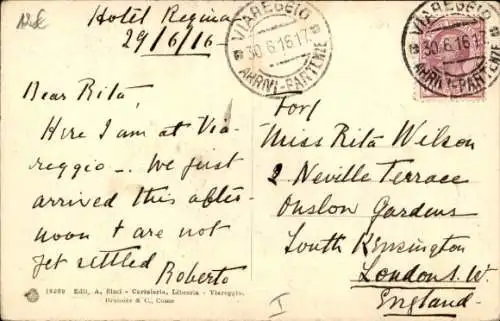 Hotel Regina
29/6/16
VIAREGGIO
30.6.16.17
ARRIVI-PARTENZE
VIAREGGIO
30.6.16.17
ARRIVI-PARTENZE
Dear Rita,
Here I am at Via-
reggio -. We just
arrived this after-
noon & are not
yet settled
Roberto
For/
Miss Rita Wilson
2 Neville Terrace
Onslow Gardens
South Kensington
London S.W.
England-
Edit. A. - Cartoleria, Libreria - Viareggio.
& C., Como
I